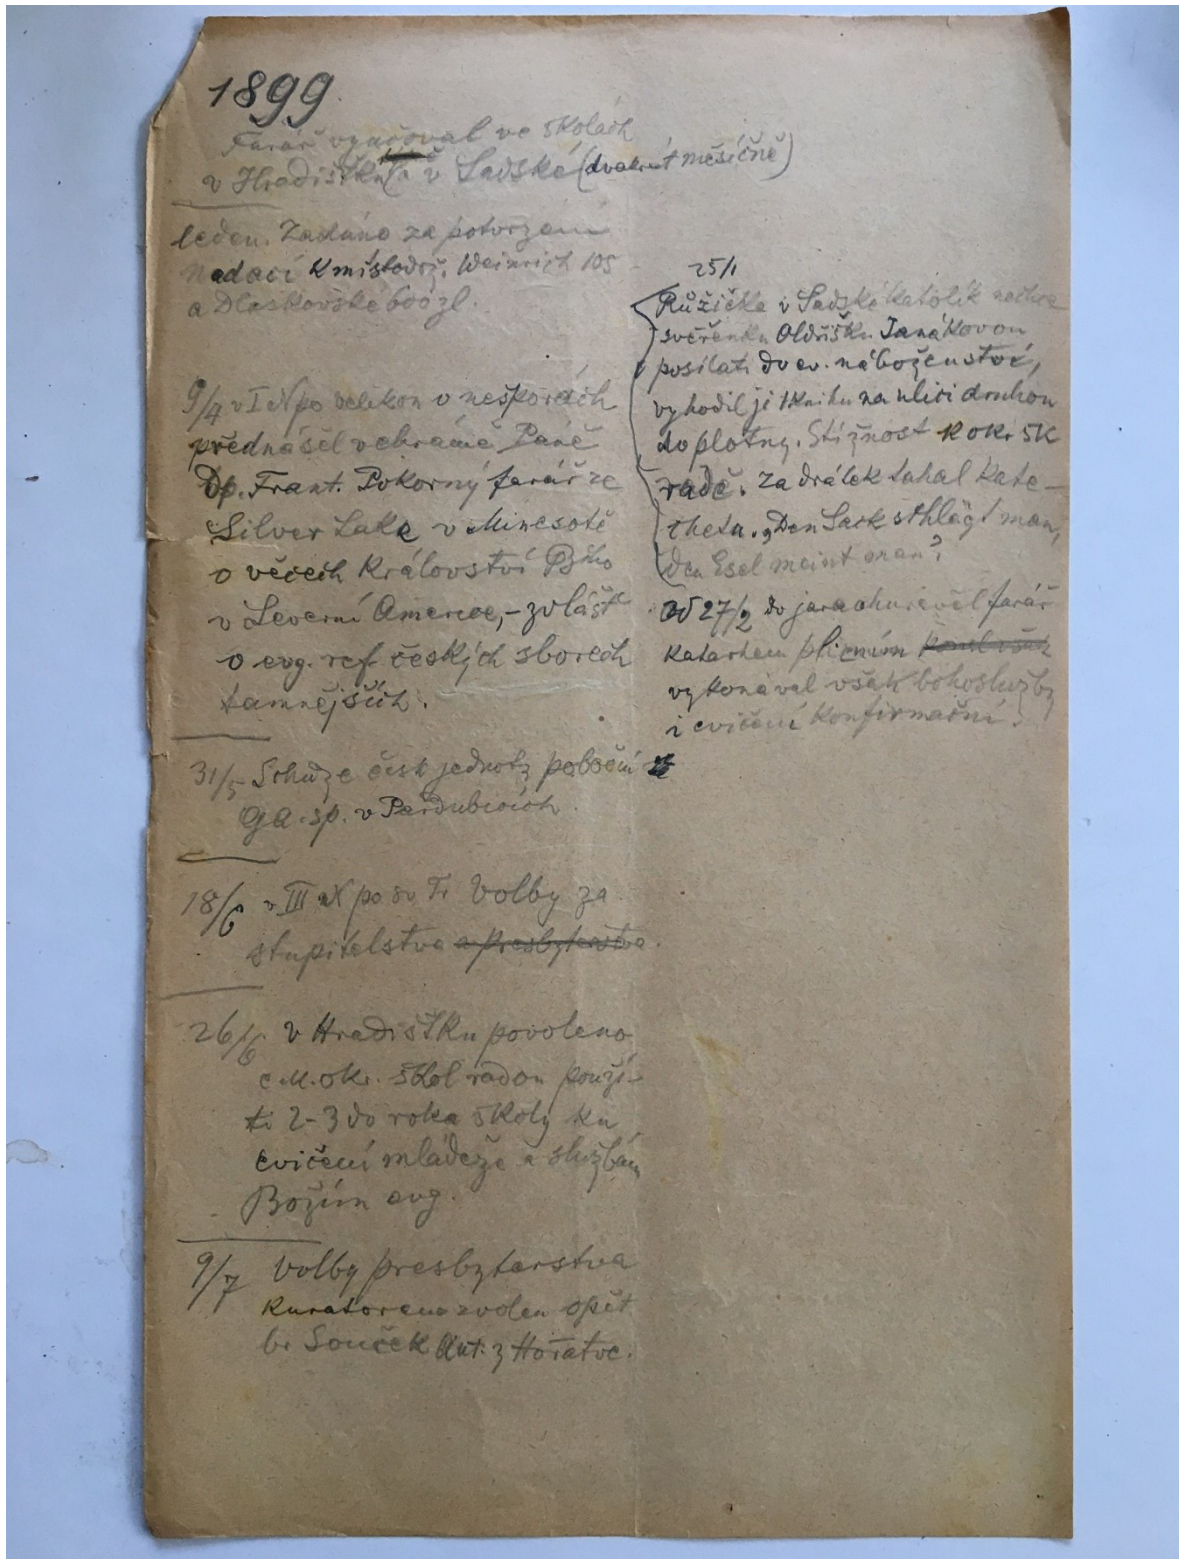 1899
Farář vyučoval ve školách
v Hradištku (a v Sadské (dvakrát měsíčně)
leden. Zadáno za potvrzení
nadací k místodrž. Weinrich 105
a Dlaskovské 600 zl.
9/4 v I N po velikon o nešporách
přednášel v chrámě Páně
Dp. Frant. Pokorný farář ze
Silver Lake v Minesotě
o věcech Království Bžího
v Severní Americe, - zvlášť
o evg. ref. českých sborech
tamnějších.
31/5 Schůze česk jednoty poboční
GA. sp. v Pardubicích.
18/6 v III N po sv Tr Volby za
stupitelstva a presbyterstva.
26/6 v Hradištku povoleno
c M. okr. škol radou použí-
ti 2-3 do roka školy ku
cvičení mládeže a službám
Božím evg.
9/7 Volby presbyterstva
Kurátorem zvolen opět
br Souček Ant. z Hořatve.
25/1
Růžička v Sadské katolík nechce
svěřenku Oldřišku Janákovou
posílati do ev. náboženství,
vyhodil jí 1 knihu na ulici druhou
do plotny. Stížnost k okr. šk
radě. Za drátek tahal kate-
cheta. "Den Sack schlägt man,
den Esel meint man"
Od 27/2 do jara churavěl farář
katarhem plicním
vykonával však bohoslužby
i cvičení konfirmační.